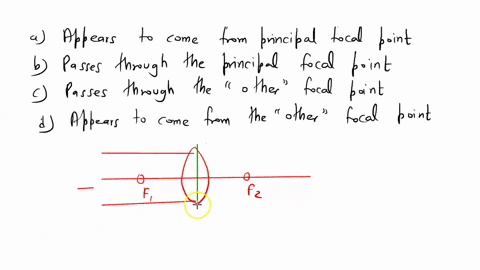 a) Appears to come from principal focal point
b) Passes through the principal focal point
c) Passes through the "other" focal point
d) Appears to come from the "other" focal point
F1 F2